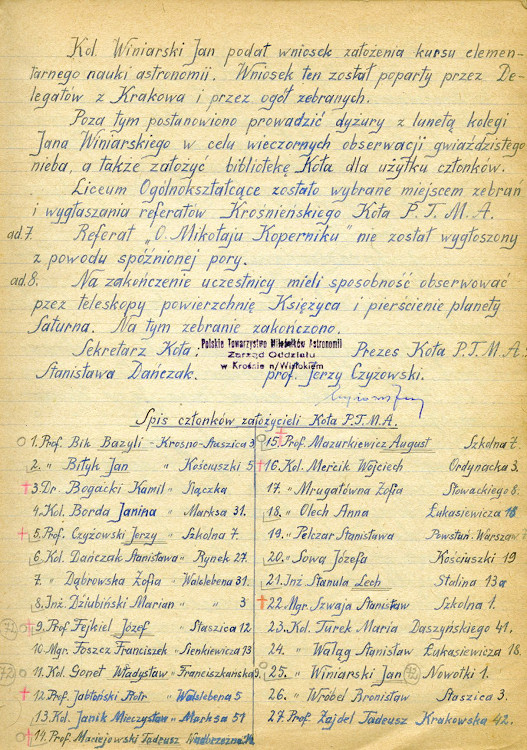 Kol. Winiarski Jan podał wniosek założenia kursu elemen-
tarnego nauki astronomii. Wniosek ten został poparty przez De-
legatów z Krakowa i przez ogół zebranych.
Poza tym postanowiono prowadzić dyżury z lunetą kolegi
Jana Winiarskiego w celu wieczornych obserwacji gwiaździstego
nieba, a także założyć bibliotekę Koła dla użytku członków.
Liceum Ogólnokształcące zostało wybrane miejscem zebrań
i wygłaszania referatów Krośnieńskiego Koła P.T.M.A.
ad.7. Referat „O Mikołaju Koperniku" nie został wygłoszony
z powodu spóźnionej pory.
ad.8. Na zakończenie uczestnicy mieli sposobność obserwować
przez teleskopy powierzchnię Księżyca i pierścienie planety
Saturna. Na tym zebranie zakończono.
Polskie Towarzystwo Miłośników Astronomii
Zarząd Oddziału
w Krośnie n/Wisłokiem
Sekretarz Koła: Prezes Koła P.T.M.A.:
Stanisława Dańczak. prof. Jerzy Czyżowski.
Spis członków założycieli Koła P.T.M.A.
1. Prof. Bik Bazyli - Krosno - Staszica 3
2. " Bityk Jan " Kościuszki 5
3. Dr. Bogacki Kamil " Ślączka
4. Kol. Borda Janina " Marksa 31.
5. Prof. Czyżowski Jerzy " Szkolna 7.
6. Kol. Dańczak Stanisława " Rynek 27.
7. " Dąbrowska Zofia " Walslebena 31.
8. Inż. Dziubiński Marian " " 3
72 9. Prof. Fejkiel Józef " Staszica 12
10. Mgr. Foszcz Franciszek " Sienkiewicza 13
72 11. Kol. Gonet Władysław " Franciszkańska 9.
12. Prof. Jabłoński Piotr " Walslebena 5
13. Kol. Janik Mieczysław " Marksa 51
14. Prof. Maciejowski Tadeusz Nadbrzeżna
15. Prof. Mazurkiewicz August Szkolna 7.
16. Kol. Mercik Wojciech Ordynacka 3.
17. " Mrugałówna Zofia Słowackiego 8.
18. " Olech Anna Łukasiewicza 18
19. " Pelczar Stanisława Powstań. Warszaw
20. " Sowa Józefa Kościuszki 19
21. Inż. Stanula Lech Stalina 13a
22. Mgr. Szwaja Stanisław Szkolna 1.
23. Kol. Turek Maria Daszyńskiego 41.
24. " Waląg Stanisław Łukasiewicza 18.
25. " Winiarski Jan 72 Nowotki 1.
26. " Wróbel Bronisław Staszica 3.
27. Prof. Zajdel Tadeusz Krakowska 42.